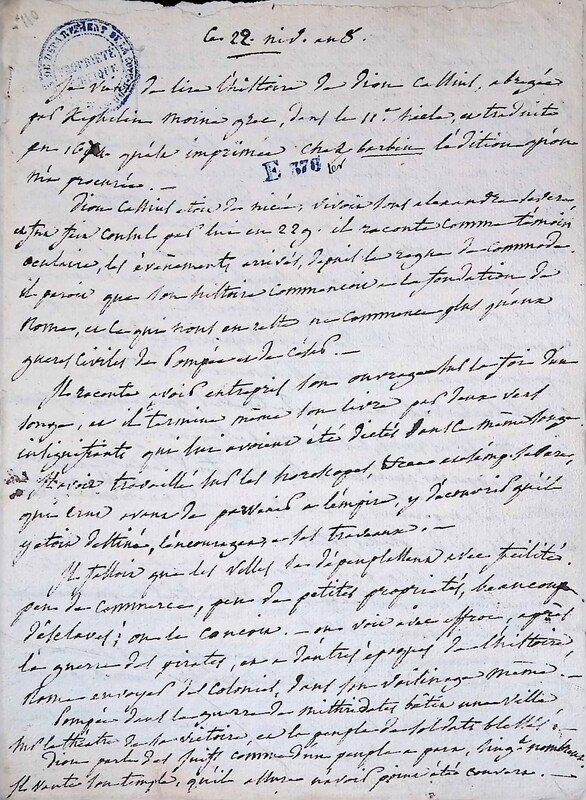 Ce 22 niv. an 8.
Je viens de lire l'histoire de Dion Cassius, abrégée
par Xiphilin moine grec, dans le 11e siecle, et traduite
en 16 qu'a imprimée chez barbin l'édition qu'on
m'a procurée. —
E 378
Dion Cassius étoit de nicée; vivoit sous alexandre severe
et fut fait Consul par lui en 229. il raconte comme témoin
oculaire, les évènements arrivés, depuis le regne de Commode.
il paroit que son histoire commencoit a la fondation de
Rome, et ce qui nous en reste ne commence plus qu'aux
guerres civiles de Pompée et de César. —
Il raconte avoir entrepris son ouvrage sur la foi d'un
songe, et il termine même son livre par deux vers
insignifiants qui lui avoient été dictés dans le même songe.
Il avoit travaillé sur les horoscopes de Severe,
qui crut avant de parvenir a l'empire, y découvrir qu'il
y etoit destiné, l'encouragea a ses travaux. —
Il falloit que les villes se dépeuplassent avec facilité.
peu de commerce, peu de petites propriétés, beaucoup
d'esclaves; on le concoit. — on voit avec effroi, après
la guerre des pirates, et a d'autres époques de l'histoire,
Rome envoyer des Colonies, dans son voisinage même. —
Pompée dans la guerre de mithridate bâtit une ville
sur le théatre de sa victoire, et la peuple de soldats blessés.
Dion parle des juifs comme d'un peuple a part, nombreux
Il vante son temple, qu'il assure n'avoir point été couvert. —